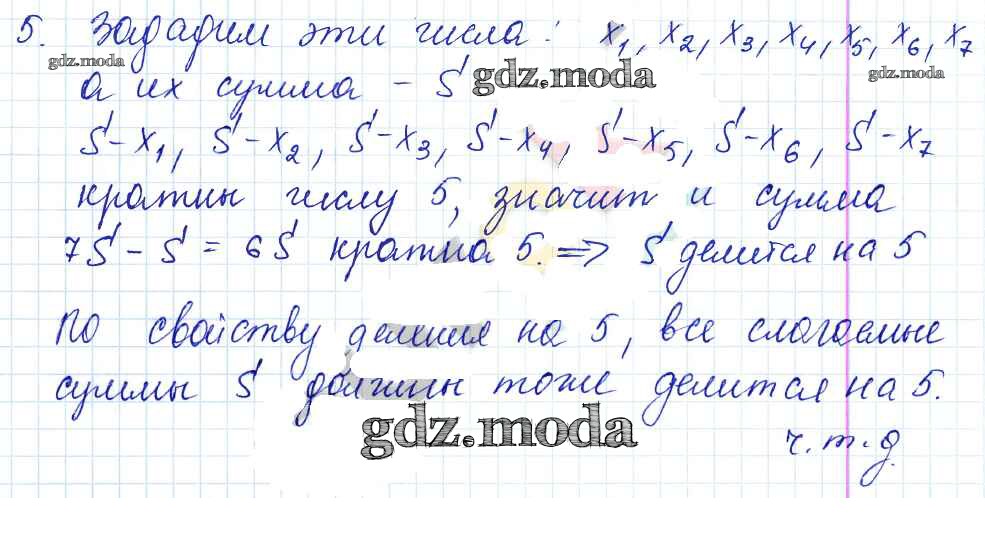 5. Зададим эти числа: x1, x2, x3, x4, x5, x6, x7
gdz.moda
gdz.moda
gdz.moda
а их сумма – S
S-x1, S-x2, S-x3, S-x4, S-x5, S-x6, S-x7
кратны числу 5, значит и сумма
7S-S = 6S кратна 5. => S делится на 5
По свойству деления на 5, все слагаемые
суммы S должны тоже делится на 5.
gdz.moda
ч.т.д.